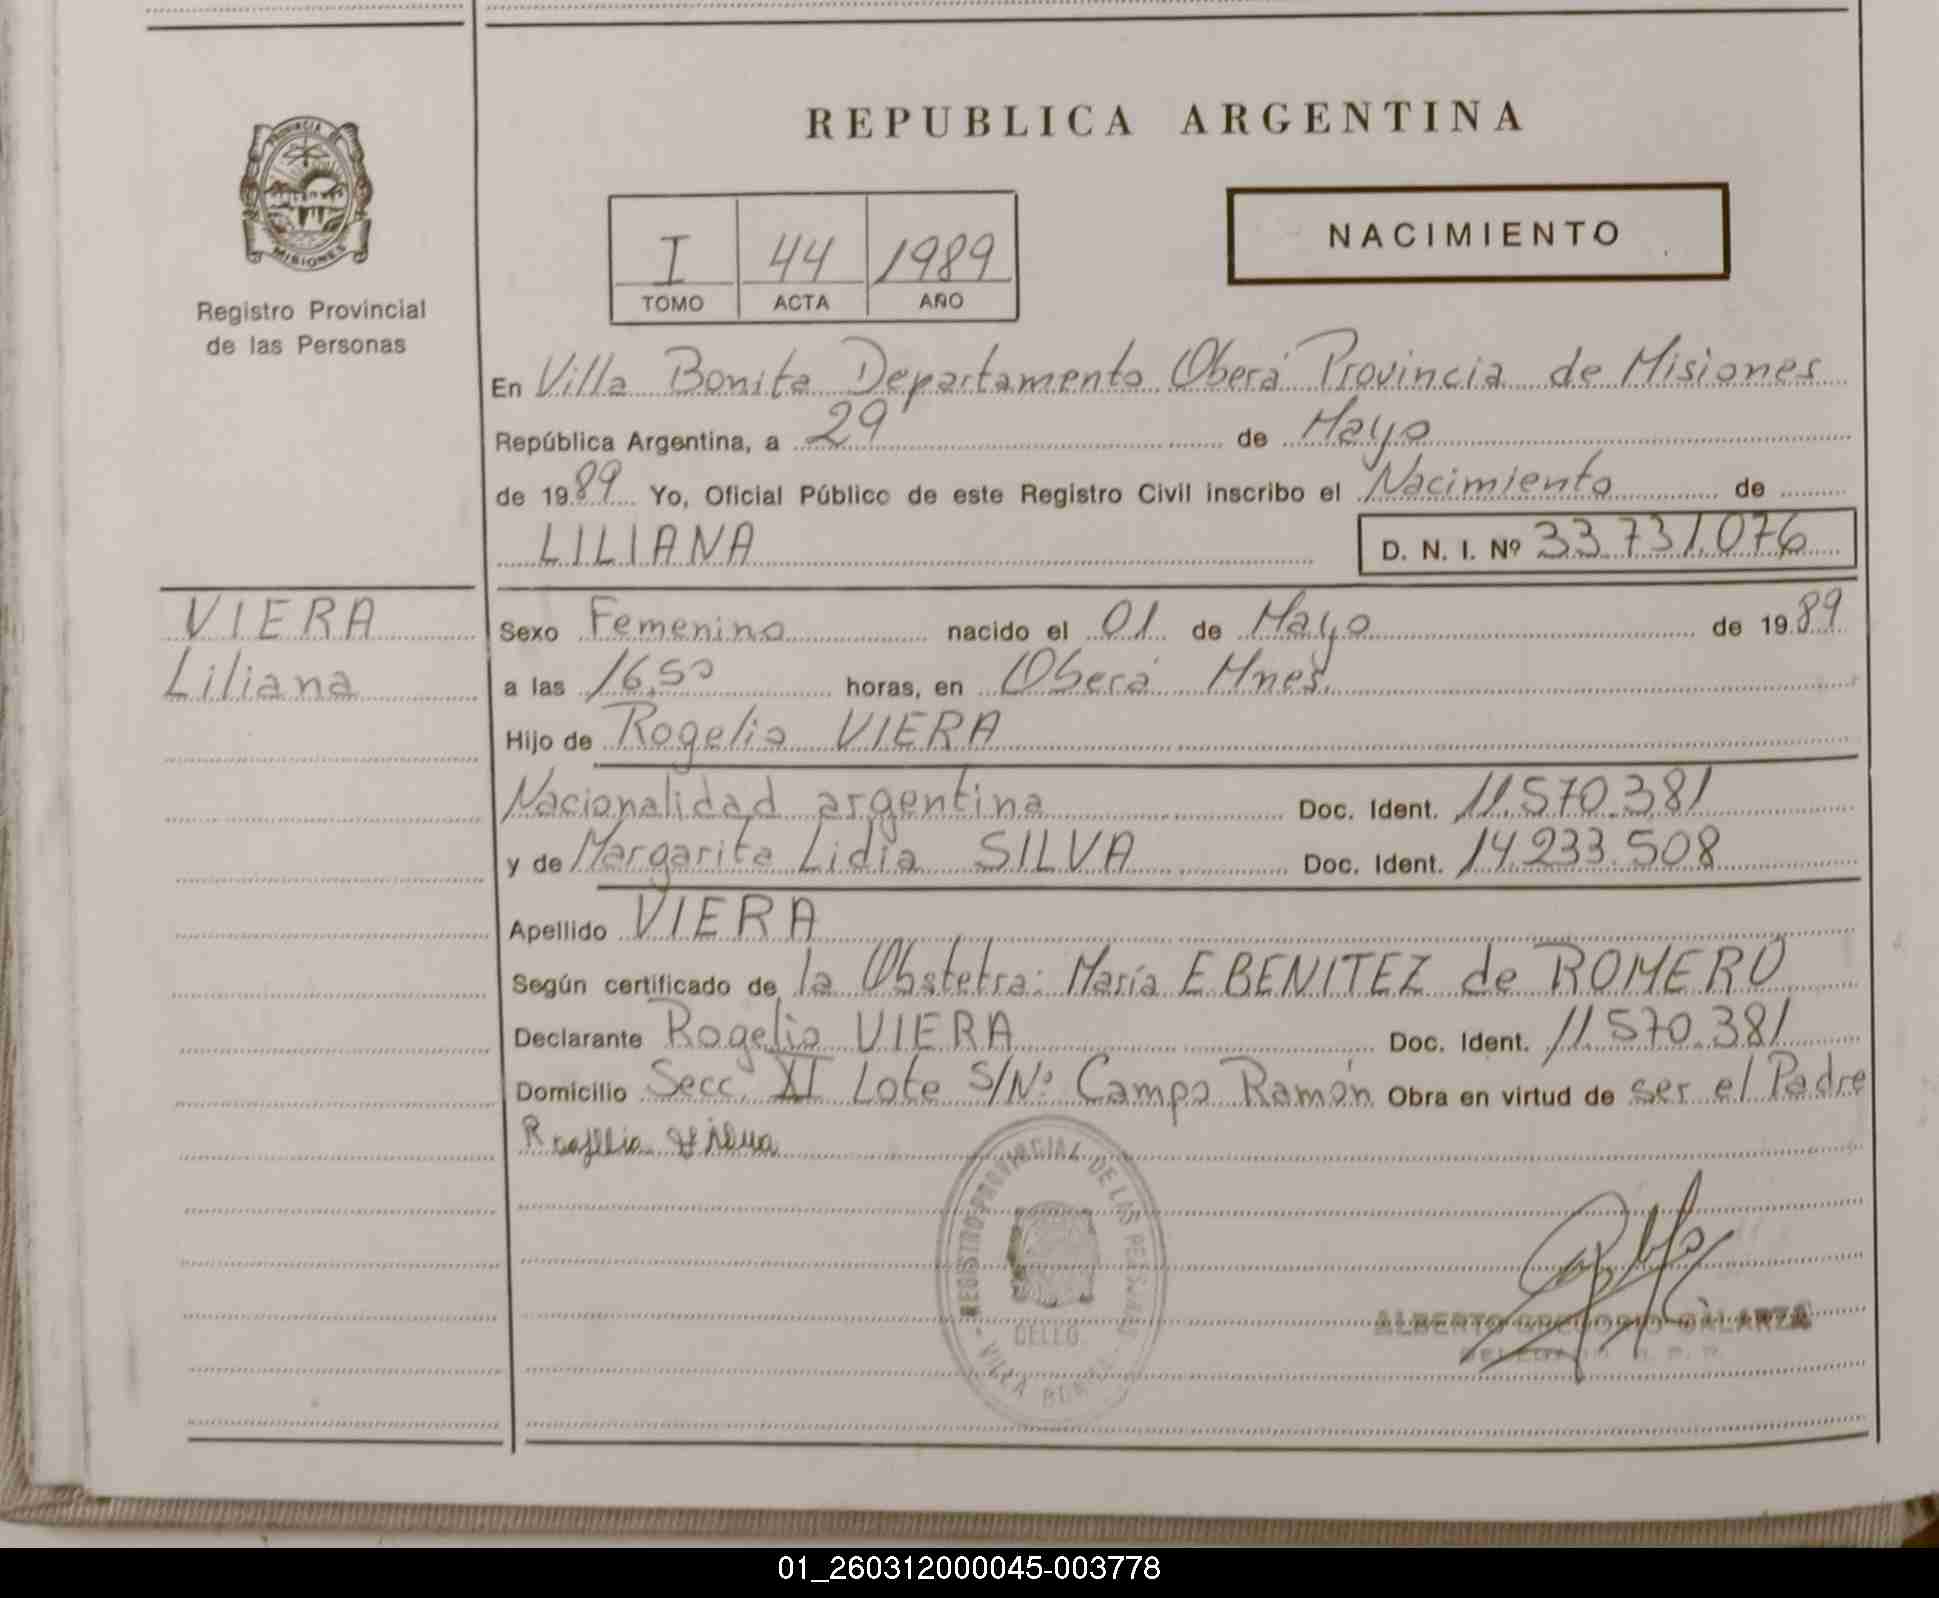 REPUBLICA ARGENTINA
PROVINCIA DE
MISIONES
Registro Provincial
de las Personas
I 44 1989
TOMO ACTA AÑO
NACIMIENTO
En Villa Bonita Departamento Oberá Provincia de Misiones
República Argentina, a 29 de Mayo
de 1989 Yo, Oficial Público de este Registro Civil inscribo el Nacimiento de
LILIANA D. N. I. Nº 33.731.076
VIERA
Liliana
Sexo Femenino nacido el 01 de Mayo de 1989
a las 16,50 horas, en Oberá Mnes.
Hijo de Rogelio VIERA
Nacionalidad argentina Doc. Ident. 11.570.381
y de Margarita Lidia SILVA Doc. Ident. 14.233.508
Apellido VIERA
Según certificado de la Obstetra: María E BENITEZ de ROMERO
Declarante Rogelio VIERA Doc. Ident. 11.570.381
Domicilio Secc. XI Lote S/Nº Campo Ramón Obra en virtud de ser el Padre
REGISTRO PROVINCIAL DE LAS PERSONAS
SELLO
VILLA BONITA
ALBERTO GREGORIO GALARZA
01_260312000045-003778